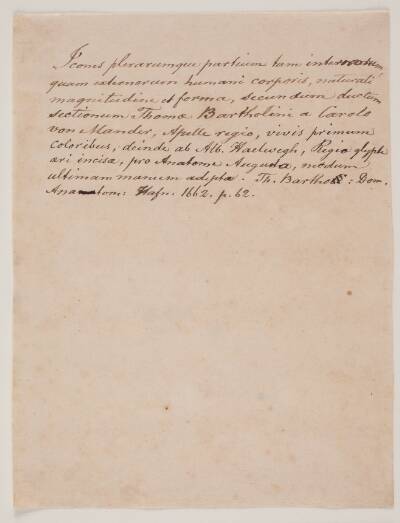 Icones plerarumque partium tam internarum
quam externorum humani corporis, naturali
magnitudine et forma, secundum ductum
sectionum Thomæ Bartholini a Carolo
von Mander, Apelle regio, vivis primum
coloribus, deinde ab Alb. Haelwegh, Regio glypte
æri incisæ, pro Anatome Augusta, nondum
ultimam manum adeptæ. Th. Barthol: Dom.
Anatom: Hafn. 1662. p. 62.